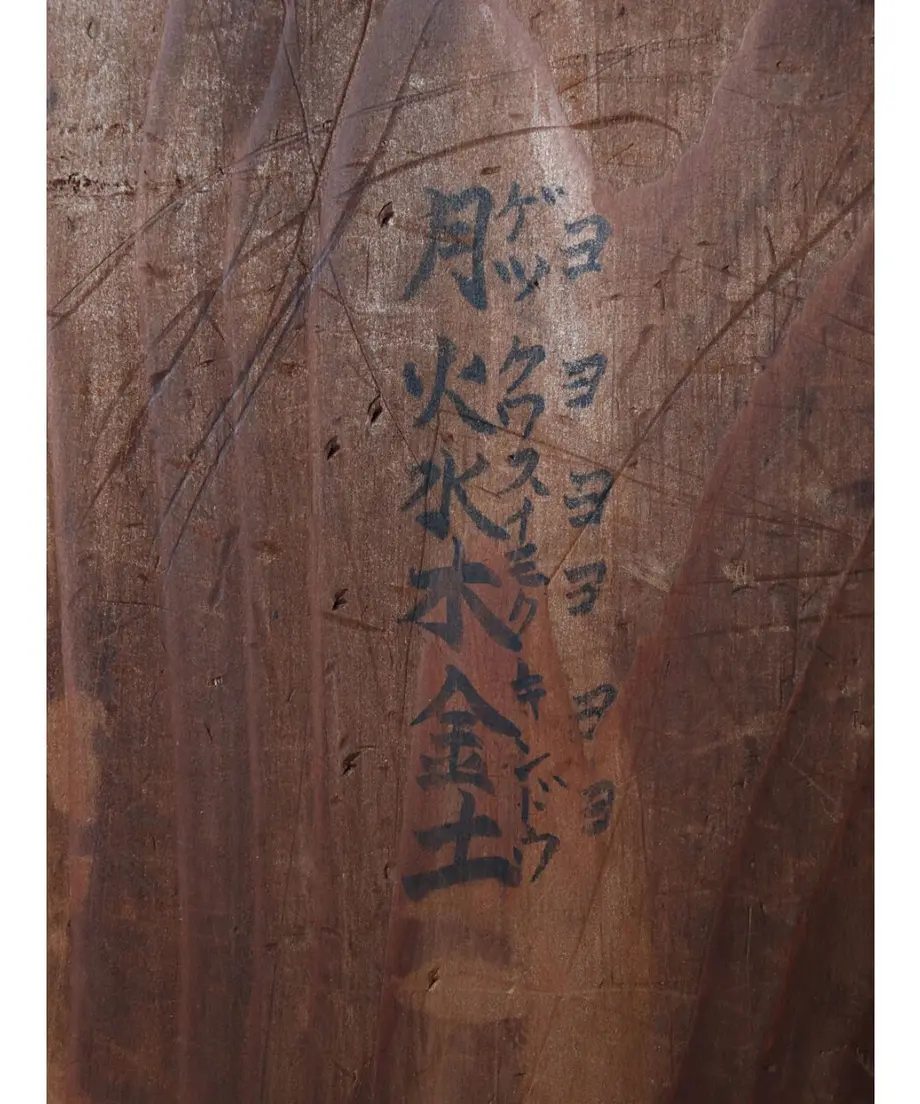 ヨヨヨヨヨヨ
ゲツクワスイモクキンドウ
月火水木金土